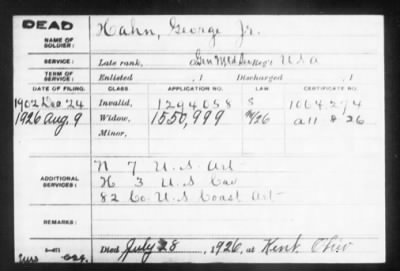 DEAD
NAME OF SOLDIER: Hahn, George Jr.
SERVICE: Late rank, Gen Med Reg't U S A
TERM OF SERVICE: Enlisted , 1 Discharged , 1
DATE OF FILING. CLASS APPLICATION NO. LAW
1902 Dec 24 Invalid, 1294058 S 1064274
1926 Aug. 9 Widow, 1550,999 26
Minor,
ADDITIONAL SERVICES: N 7 U.S. Art
H 3 U.S Cav
82 Co. U.S Coast Art
REMARKS:
Died July 28, 1926, at Kent Ohio